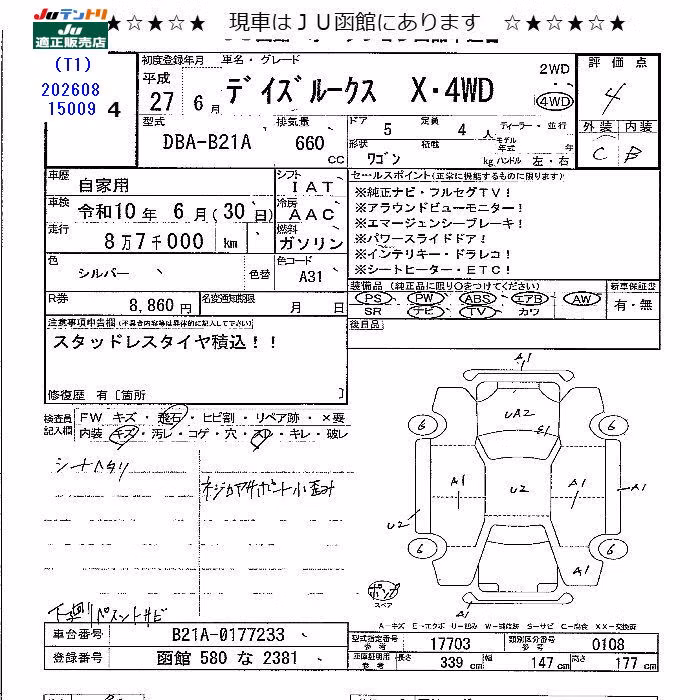 Juテントリ
Ju
適正販売店
★☆★☆★ 現車はＪＵ函館にあります ☆★☆★☆★
(T1)
202608
15009
4
初度登録年月
平成
27 年 6 月
車名・グレード
デイズルークス X・4WD
2WD
4WD
評価点
4
外装 内装
C B
型式
DBA-B21A
排気量
660
cc
ドア
5
定員
4 人
ディーラー・並行
形状
ワゴン
積載
kg
モデル年式 年
ハンドル 左・右
車歴
自家用
シフト
IAT
車検
令和10年 6月(30日)
冷房
AAC
走行
8万7千000 km
燃料
ガソリン
色
シルバー
色替
色コード
A31
R券
8,860円
名変通知期限
月 日
セールスポイント(正常に機能するものに限ります)
※純正ナビ・フルセグTV！
※アラウンドビューモニター！
※エマージェンシーブレーキ！
※パワースライドドア！
※インテリキー・ドラレコ！
※シートヒーター・ETC！
装備品 (純正品に限り○をつけてください)
PS PW ABS エアB AW
SR ナビ TV カワ
新車保証書
有・無
後日品
注意事項申告欄(不具合内容等は具体的に記入して下さい)
スタッドレスタイヤ積込！！
修復歴 有〔箇所 〕
検査員記入欄
FW キズ・飛石・ヒビ割・リペア跡・×要
内装 キズ・汚レ・コゲ・穴・スレ・キレ・破レ
シートヘタリ
ネジカヤサポート小歪み
下廻りペイントサビ
A1
UA2
E1
6
6
A1
U2
A1
A1
U2
6
6
A1
A1
スペア
A-キズ E-エクボ U-凹み W-補修跡 S-サビ C-腐食 XX-交換済
車台番号
B21A-0177233
登録番号
函館 580 な 2381
型式指定番号
参考
17703
類別区分番号
参考
0108
車庫証明用
参考
長さ
339 cm
幅
147 cm
高さ
177 cm